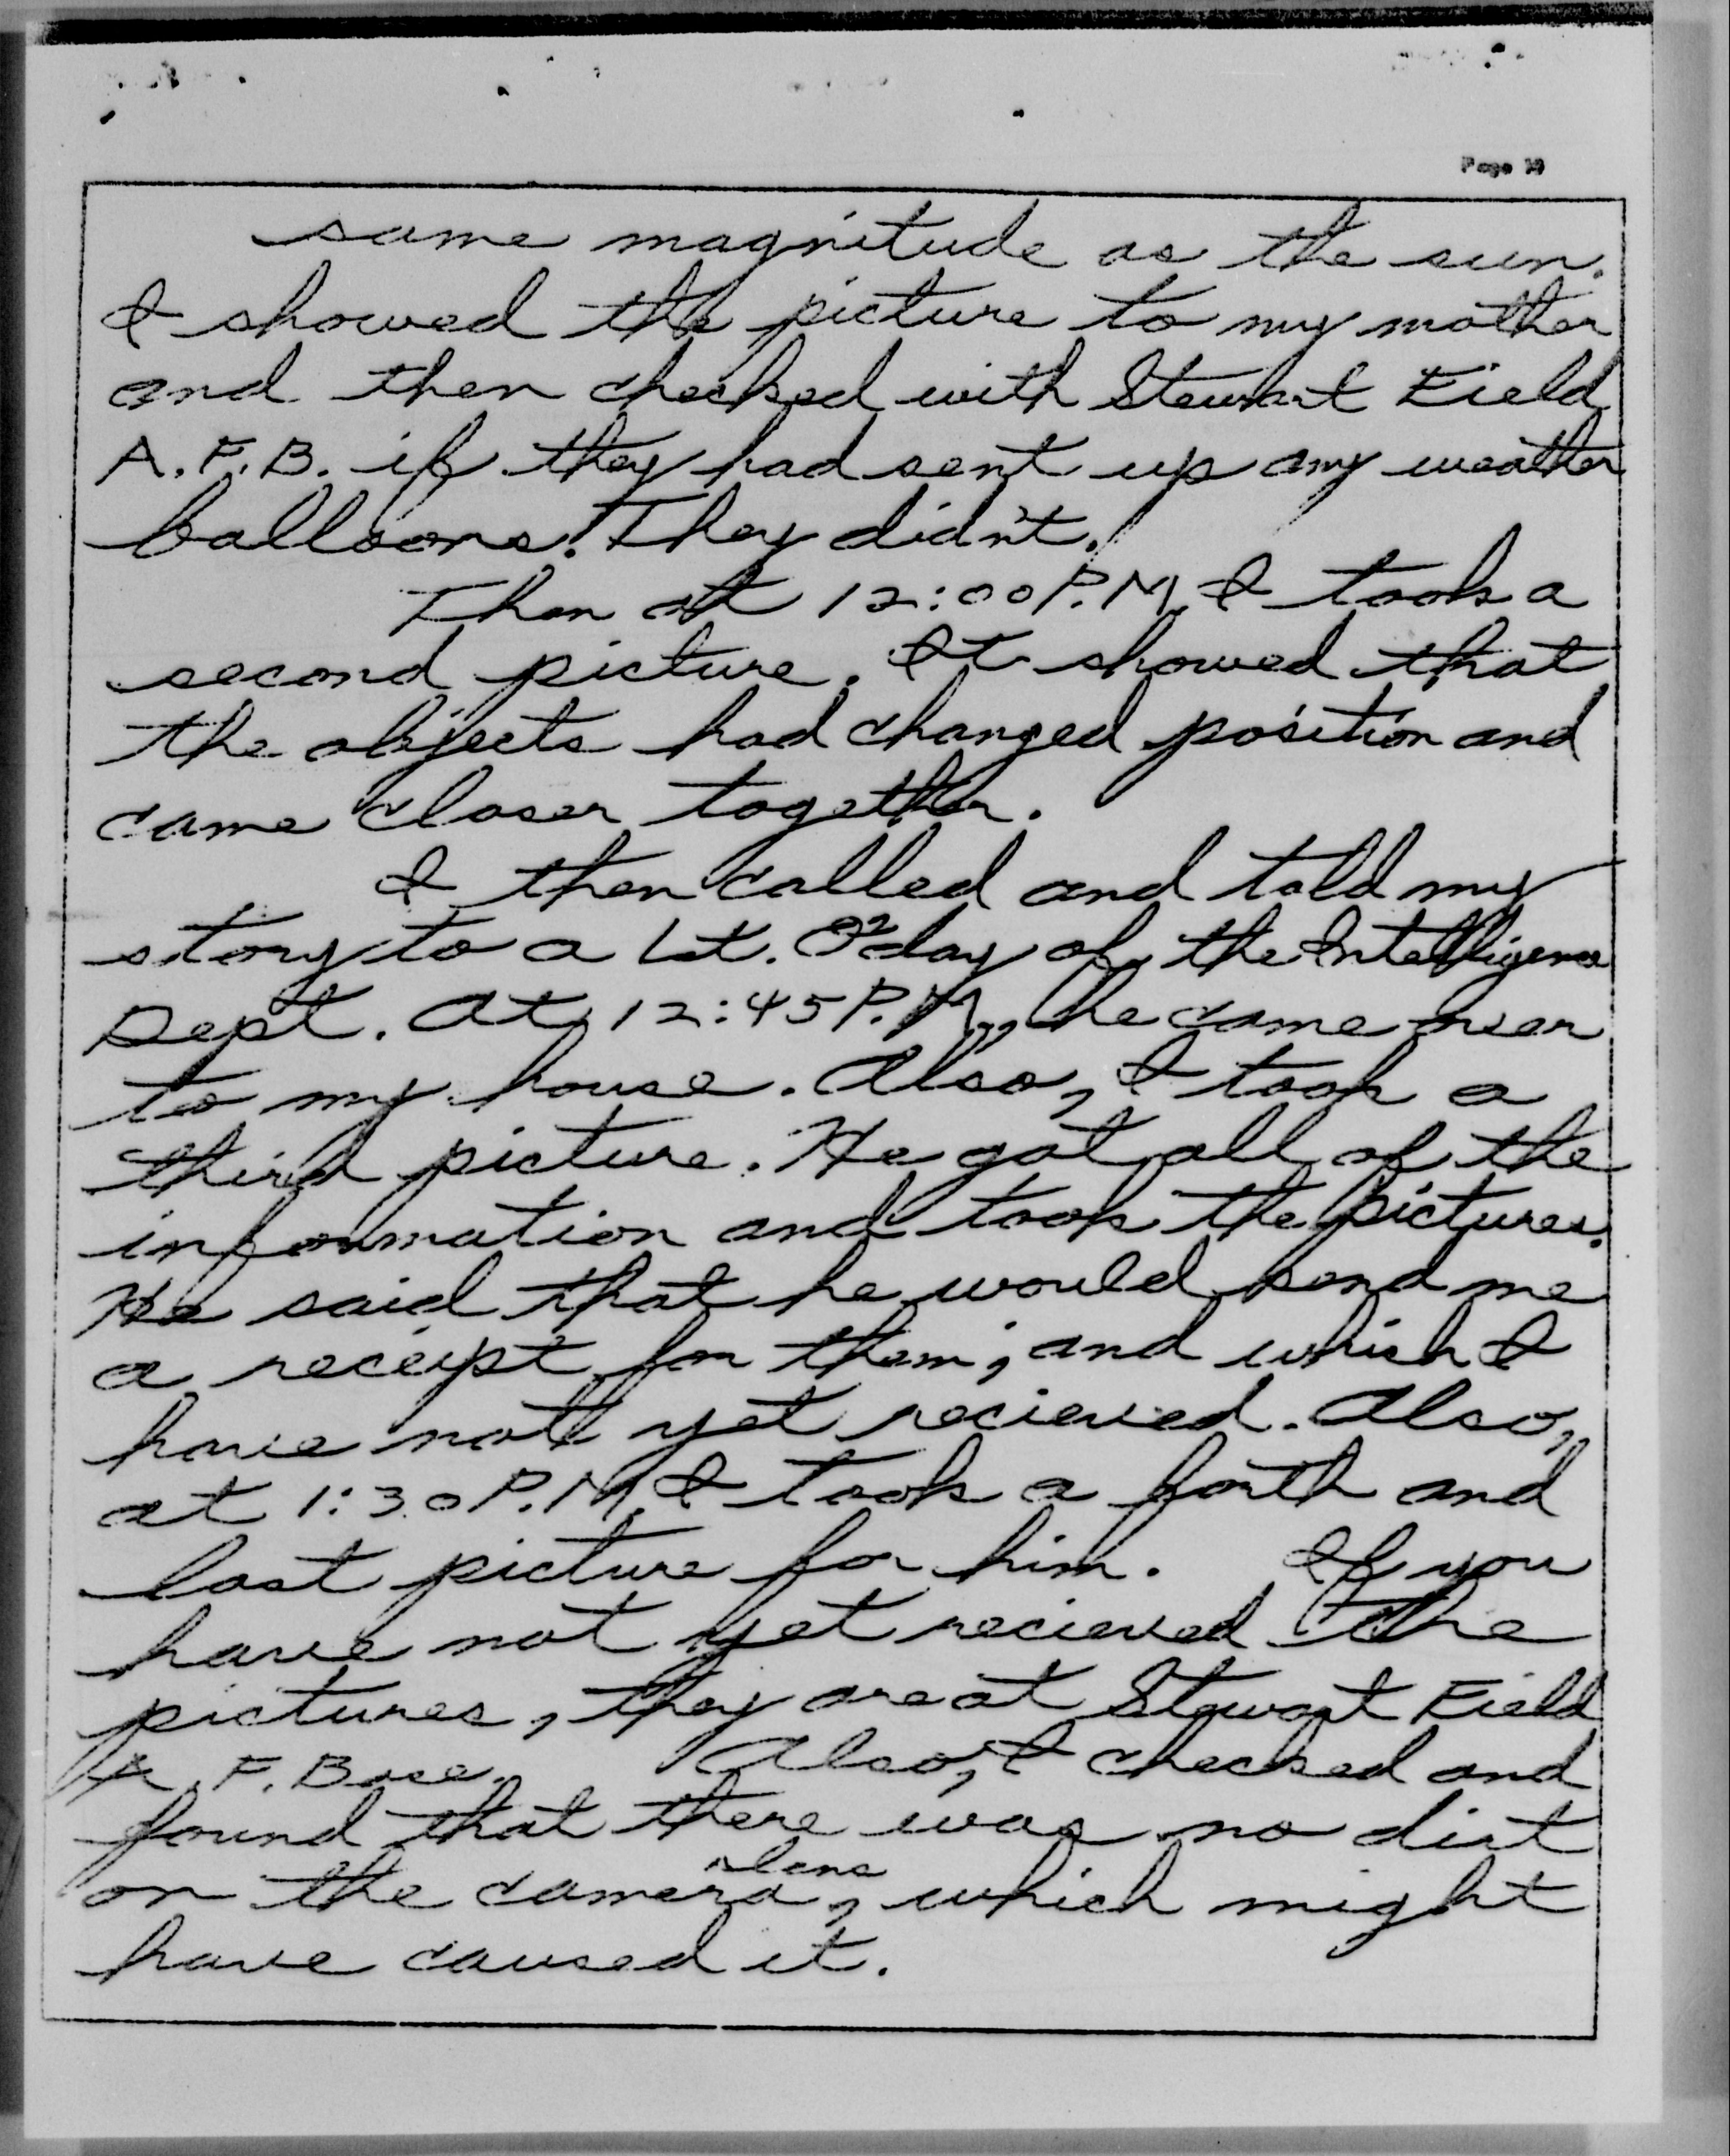 Page 10
same magnitude as the sun.
I showed the picture to my mother
and then checked with Stewart Field
A.F.B. if they had sent up any weather
balloons. They didn't.
Then at 12:00 P.M. I took a
second picture. It showed that
the objects had changed position and
came closer together.
I then called and told my
story to a Lt. day of the Intelligence
Dept. At 12:45 P.M., he came over
to my house. Also, I took a
third picture. He got all of the
information and took the pictures.
He said that he would send me
a receipt for them, and which I
have not yet recieved. Also,
at 1:30 P.M. I took a forth and
last picture for him. If you
have not yet recieved the
pictures, they are at Stewart Field
A. F. Base. Also, I checked and
found that there was no dirt
lens
on the camera, which might
have caused it.